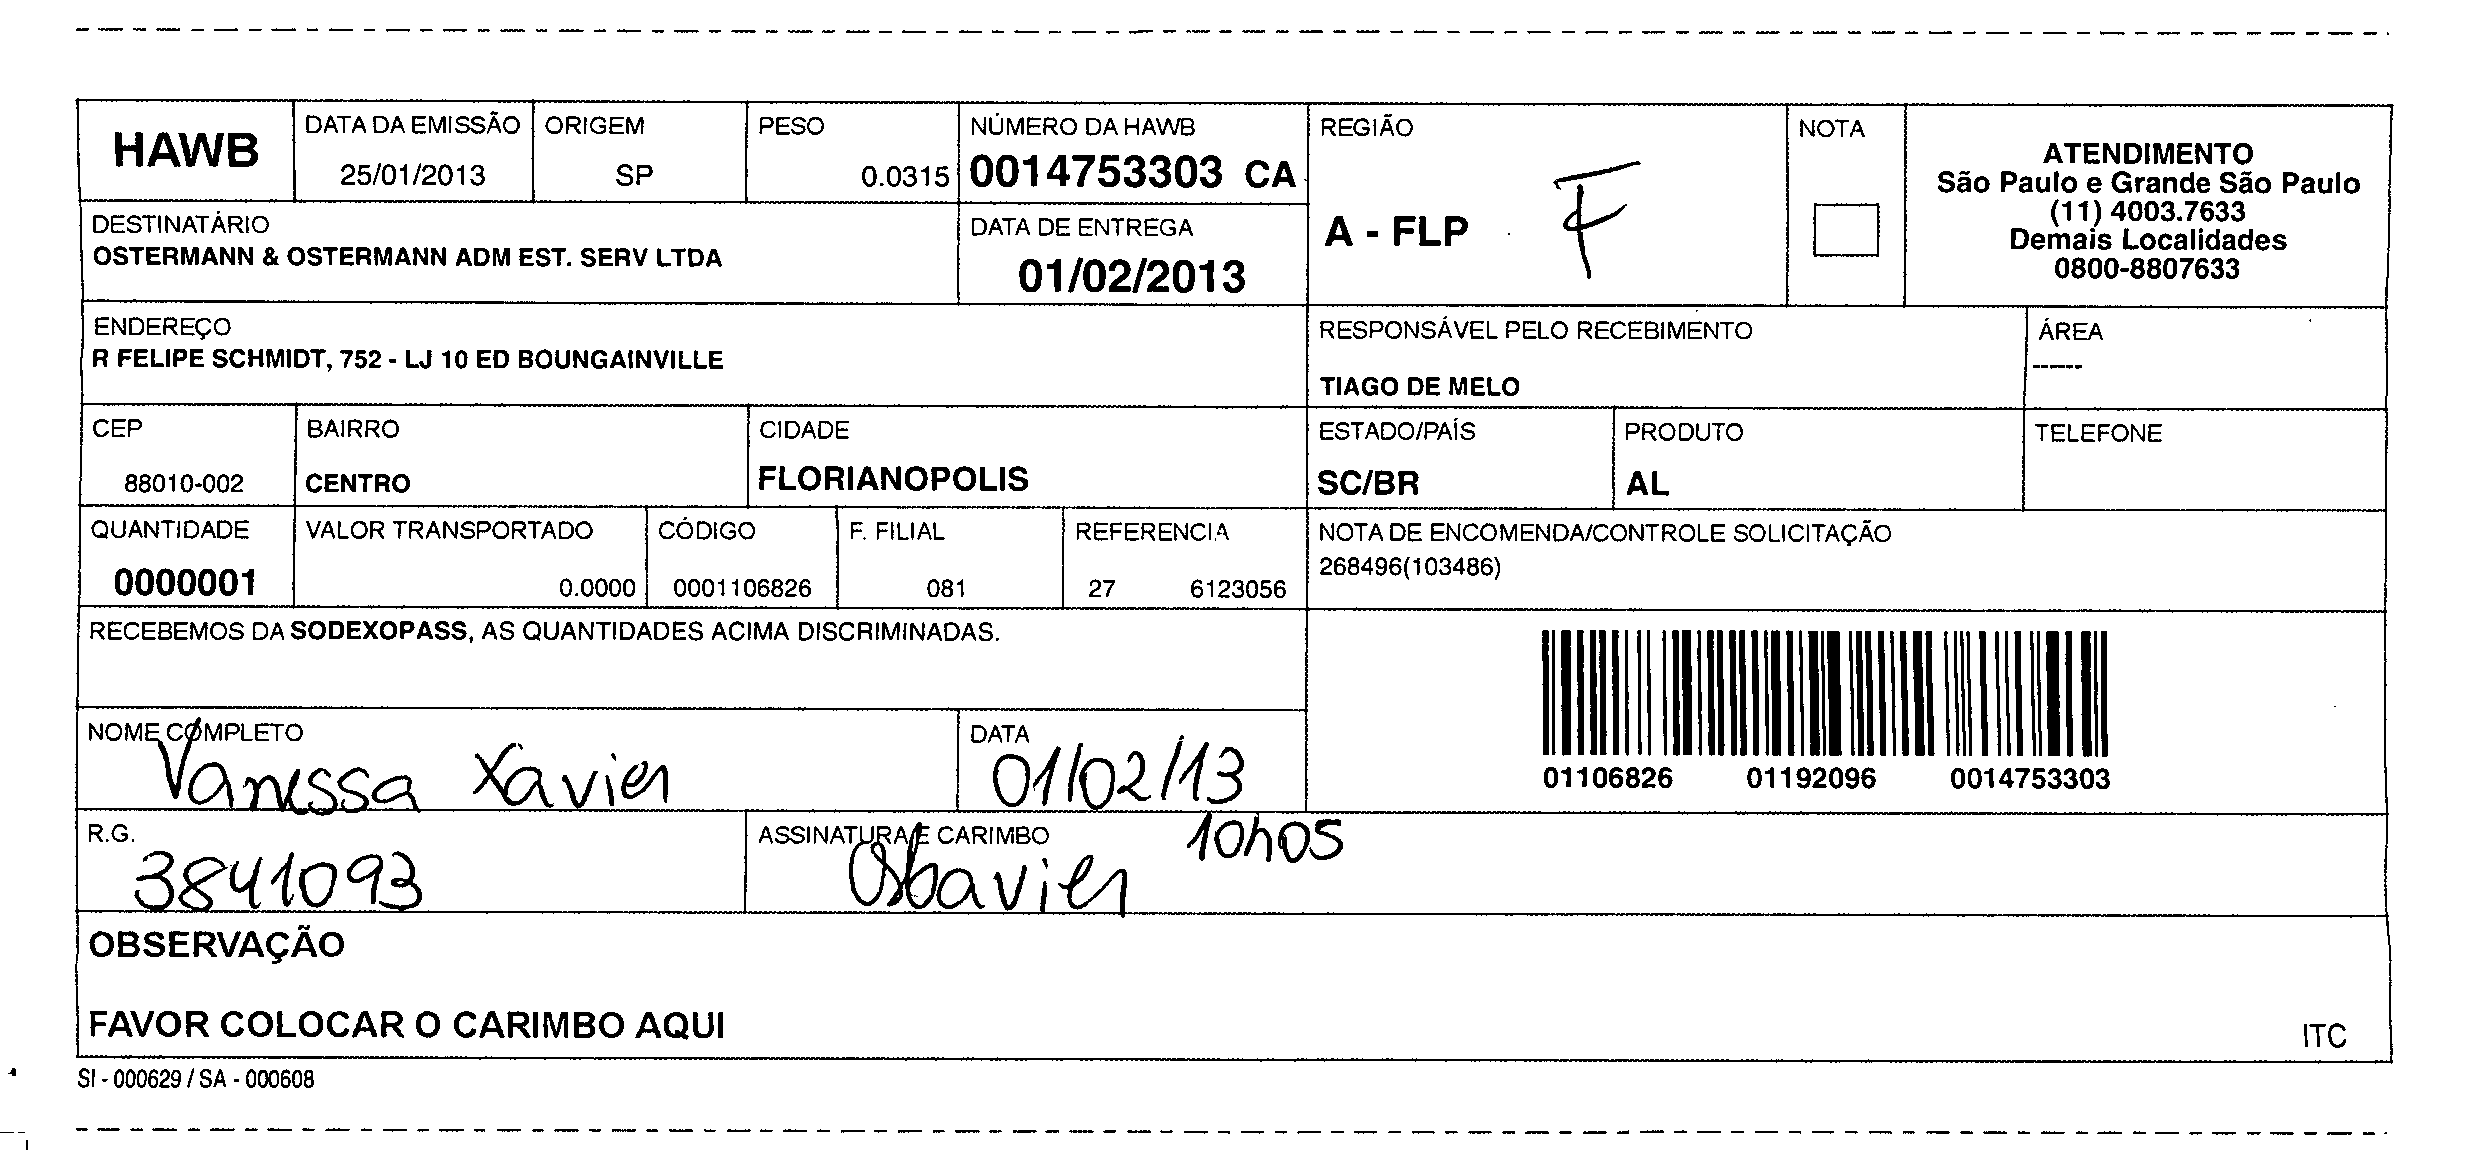 HAWB
DATA DA EMISSÃO
25/01/2013
ORIGEM
SP
PESO
0.0315
NÚMERO DA HAWB
0014753303 CA
REGIÃO
A - FLP F
NOTA
ATENDIMENTO
São Paulo e Grande São Paulo
(11) 4003.7633
Demais Localidades
0800-8807633
DESTINATÁRIO
OSTERMANN & OSTERMANN ADM EST. SERV LTDA
DATA DE ENTREGA
01/02/2013
ENDEREÇO
R FELIPE SCHMIDT, 752 - LJ 10 ED BOUNGAINVILLE
RESPONSÁVEL PELO RECEBIMENTO
TIAGO DE MELO
ÁREA
------
CEP
88010-002
BAIRRO
CENTRO
CIDADE
FLORIANOPOLIS
ESTADO/PAÍS
SC/BR
PRODUTO
AL
TELEFONE
QUANTIDADE
0000001
VALOR TRANSPORTADO
0.0000
CÓDIGO
0001106826
F. FILIAL
081
REFERENCIA
27 6123056
NOTA DE ENCOMENDA/CONTROLE SOLICITAÇÃO
268496(103486)
RECEBEMOS DA SODEXOPASS, AS QUANTIDADES ACIMA DISCRIMINADAS.
01106826 01192096 0014753303
NOME COMPLETO
Vanessa Xavier
DATA
01/02/13
R.G.
3841093
ASSINATURA E CARIMBO
10h05
OBSERVAÇÃO
FAVOR COLOCAR O CARIMBO AQUI
ITC
SI - 000629 / SA - 000608